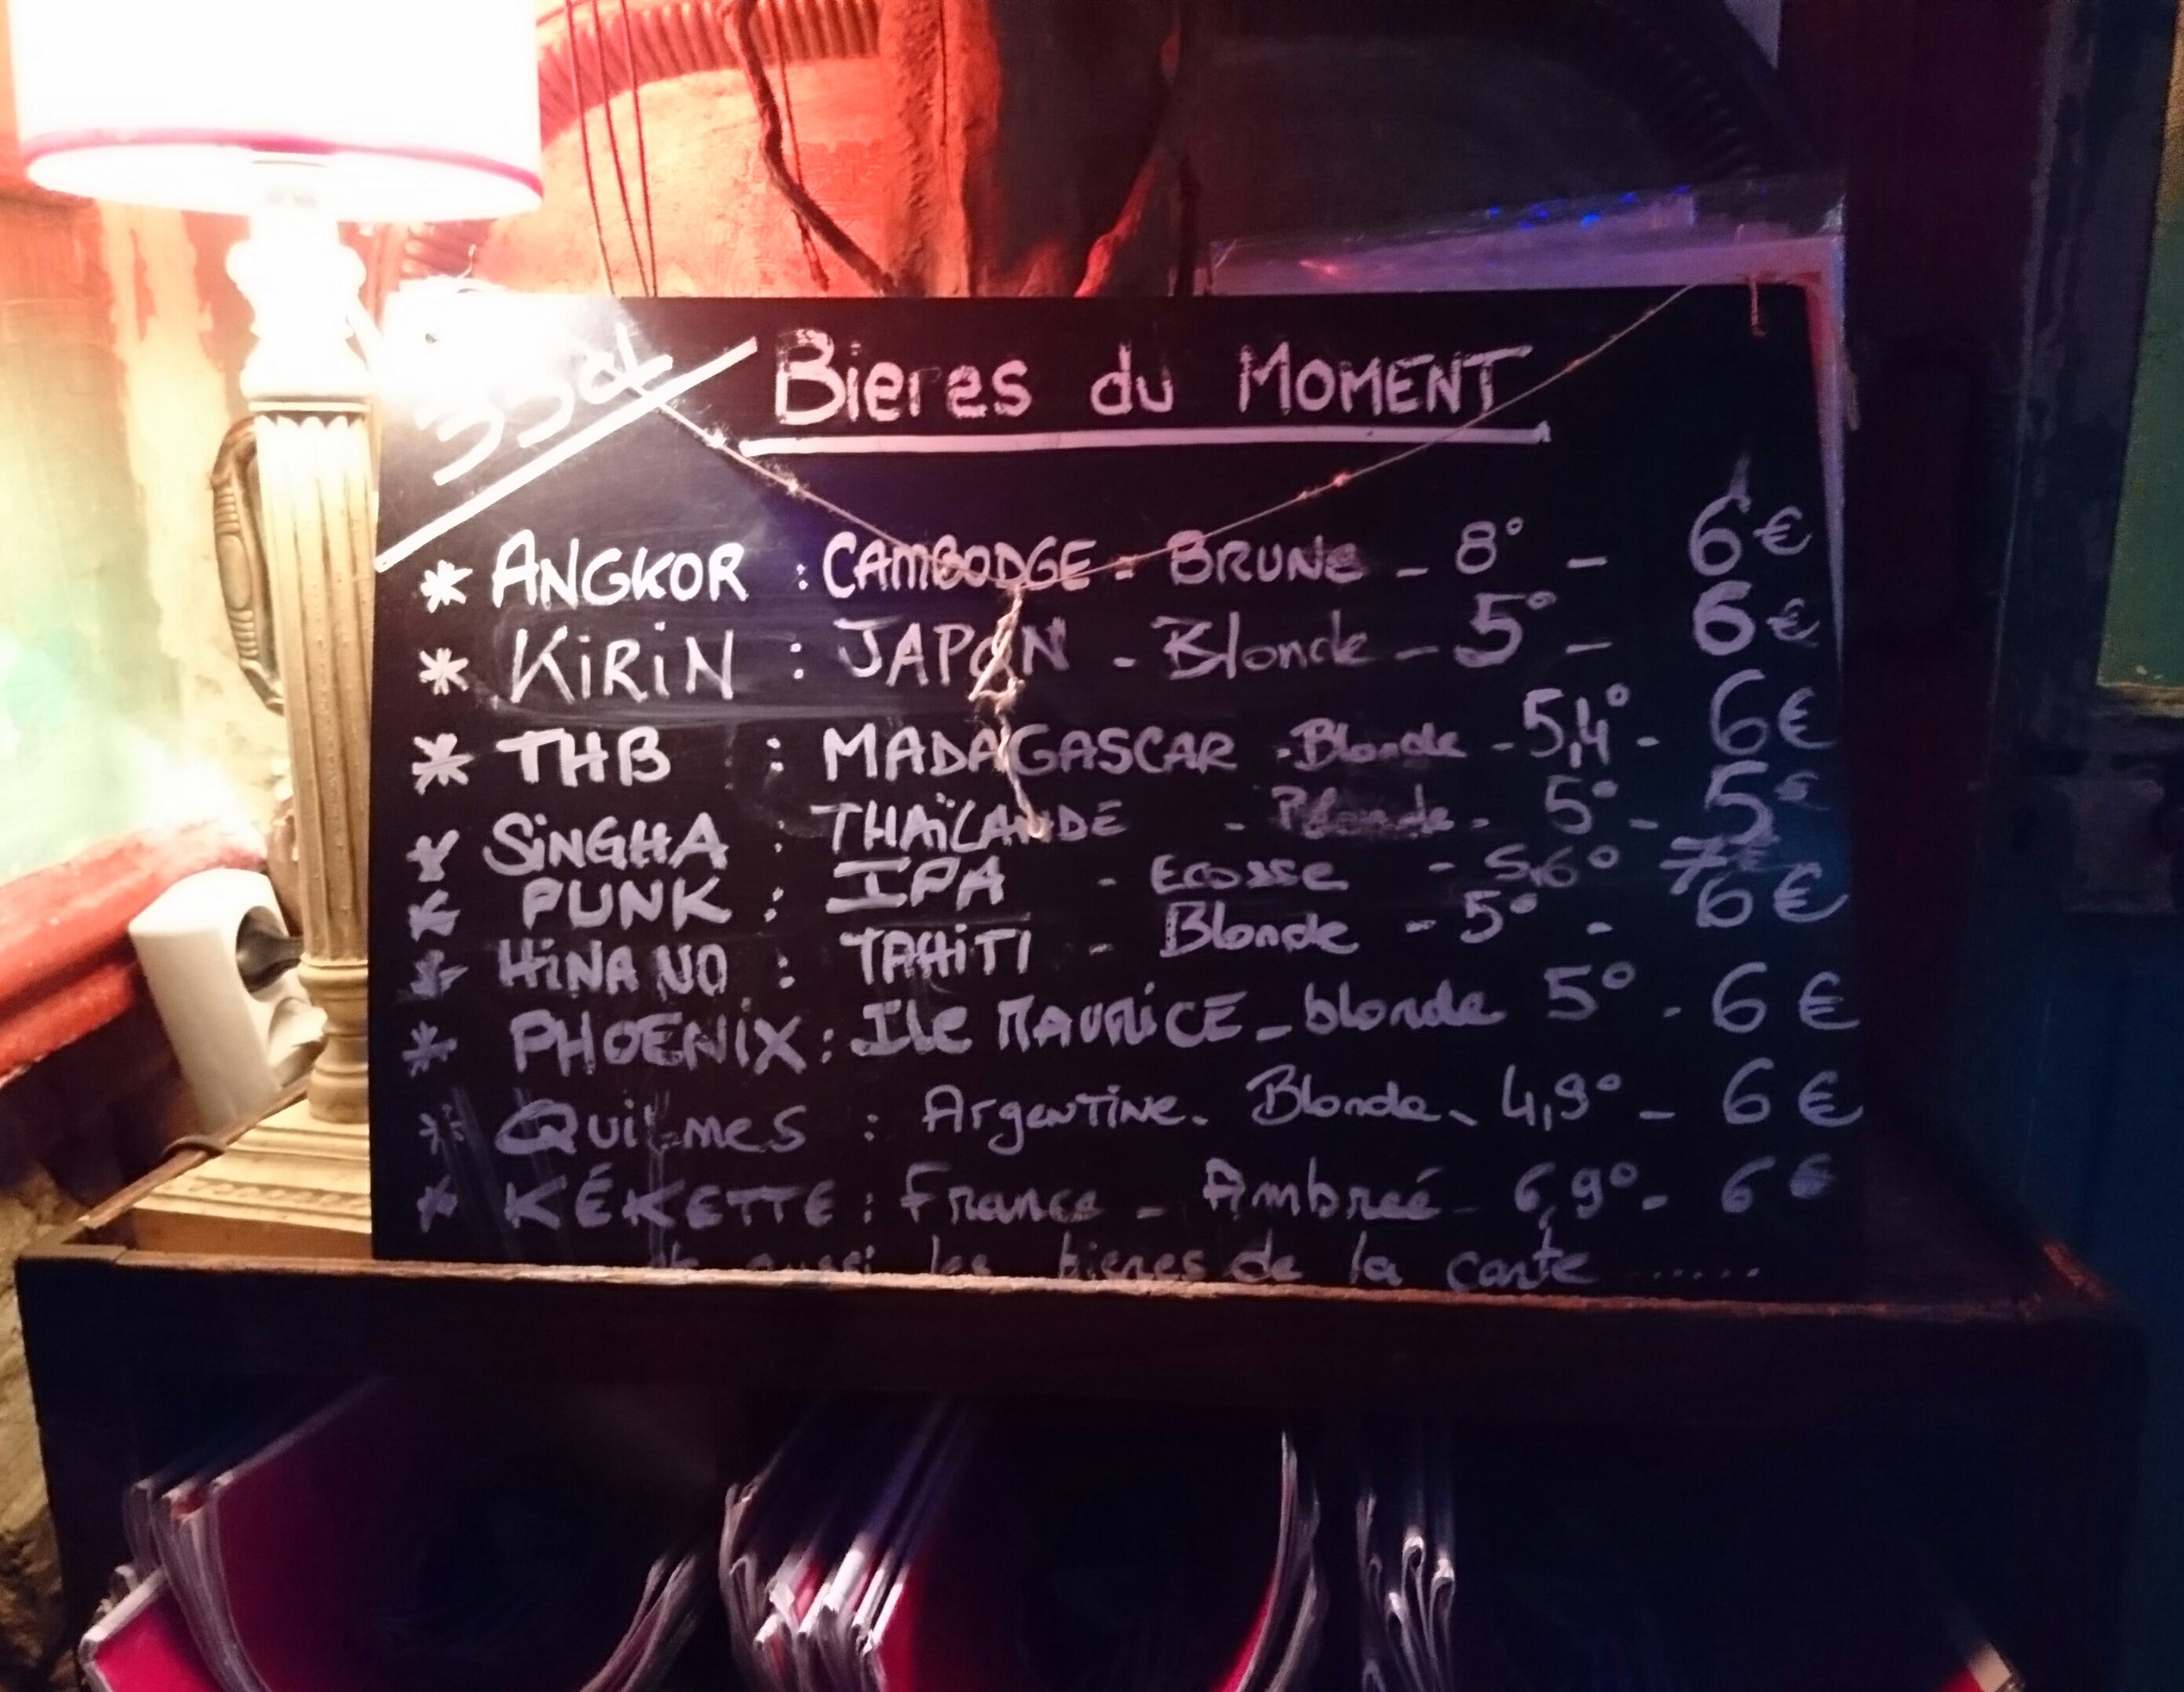 33cl
Bieres du MOMENT
* ANGKOR : CAMBODGE - BRUNE - 8° - 6€
* KiRiN : JAPON - Blonde - 5° - 6€
* THB : MADAGASCAR - Blonde - 5,4° - 6€
* SiNGHA : THAÏLANDE - Blonde - 5° - 5€
* PUNK : IPA - Ecosse - 5,6° 7€
* HiNANO : TAHiTi - Blonde - 5° - 6€
* PHOENiX : ILE MAURiCE - blonde 5° - 6€
* Quilmes : Argentine - Blonde - 4,9° - 6€
* KÉKETTE : France - Ambreé - 6,9° - 6€
aussi les bieres de la carte ......